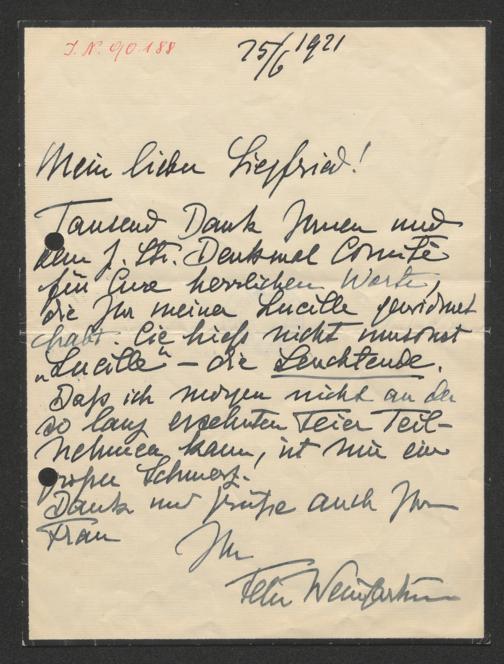 J. N. 90.188
25/6 1921
Mein lieber Siegfried!
Tausend Dank Ihnen und
dem J. Str. Denkmal Comité
für Eure herrlichen Worte,
die Ihr meiner Lucille gewidmet
habt. Sie hieß nicht umsonst
„Lucille“ – die Leuchtende.
Daß ich morgen nicht an der
so lang ersehnten Feier Teil-
nehmen kann, ist mir ein
großer Schmerz.
Dank und Grüße auch Ihrer
Frau
Ihr
Felix Weingartner